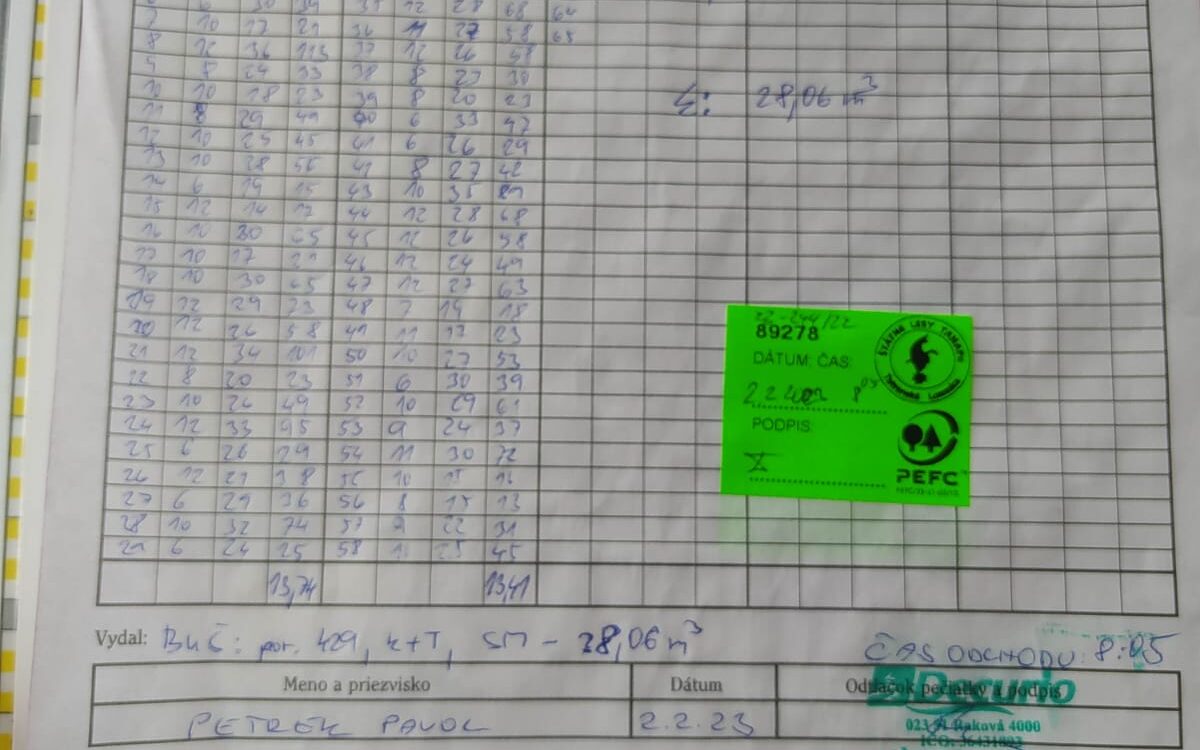 7 10 17 21 36 11 27 58 65
8 12 36 113 37 12 26 58
9 8 24 33 38 8 27 39
10 10 18 23 39 8 20 23
Σ: 28,06 m³
11 8 29 49 40 6 33 47
12 10 25 45 41 6 26 29
13 10 28 56 42 8 27 42
14 6 19 15 43 10 35 87
15 12 14 17 44 12 28 68
16 10 30 65 45 12 26 58
17 10 17 21 46 12 24 49
18 10 30 65 47 12 27 63
19 12 29 73 48 7 19 18
20 12 26 58 49 11 17 23
21 12 34 101 50 10 27 53
22 8 20 23 51 6 30 39
23 10 26 49 52 10 29 61
24 12 33 95 53 9 24 37
25 6 26 29 54 11 30 72
26 12 21 38 55 10 15 16
27 6 29 36 56 8 15 13
28 10 32 74 57 22 31
29 6 24 25 58 25 45
13,74 13,41
22-244/22
89278
DÁTUM: ČAS:
8 05
PODPIS:
ŠTÁTNE LESY TANAPu
Tatranská Lomnica
PEFC
Vydal: por. 429, SM - 28,06 m³
ČAS ODCHODU: 8:05
Meno a priezvisko Dátum Odtlačok pečiatky a podpis
PETREK PAVOL 2.2.23
Decurio
023 51 Raková 4000
IČO: